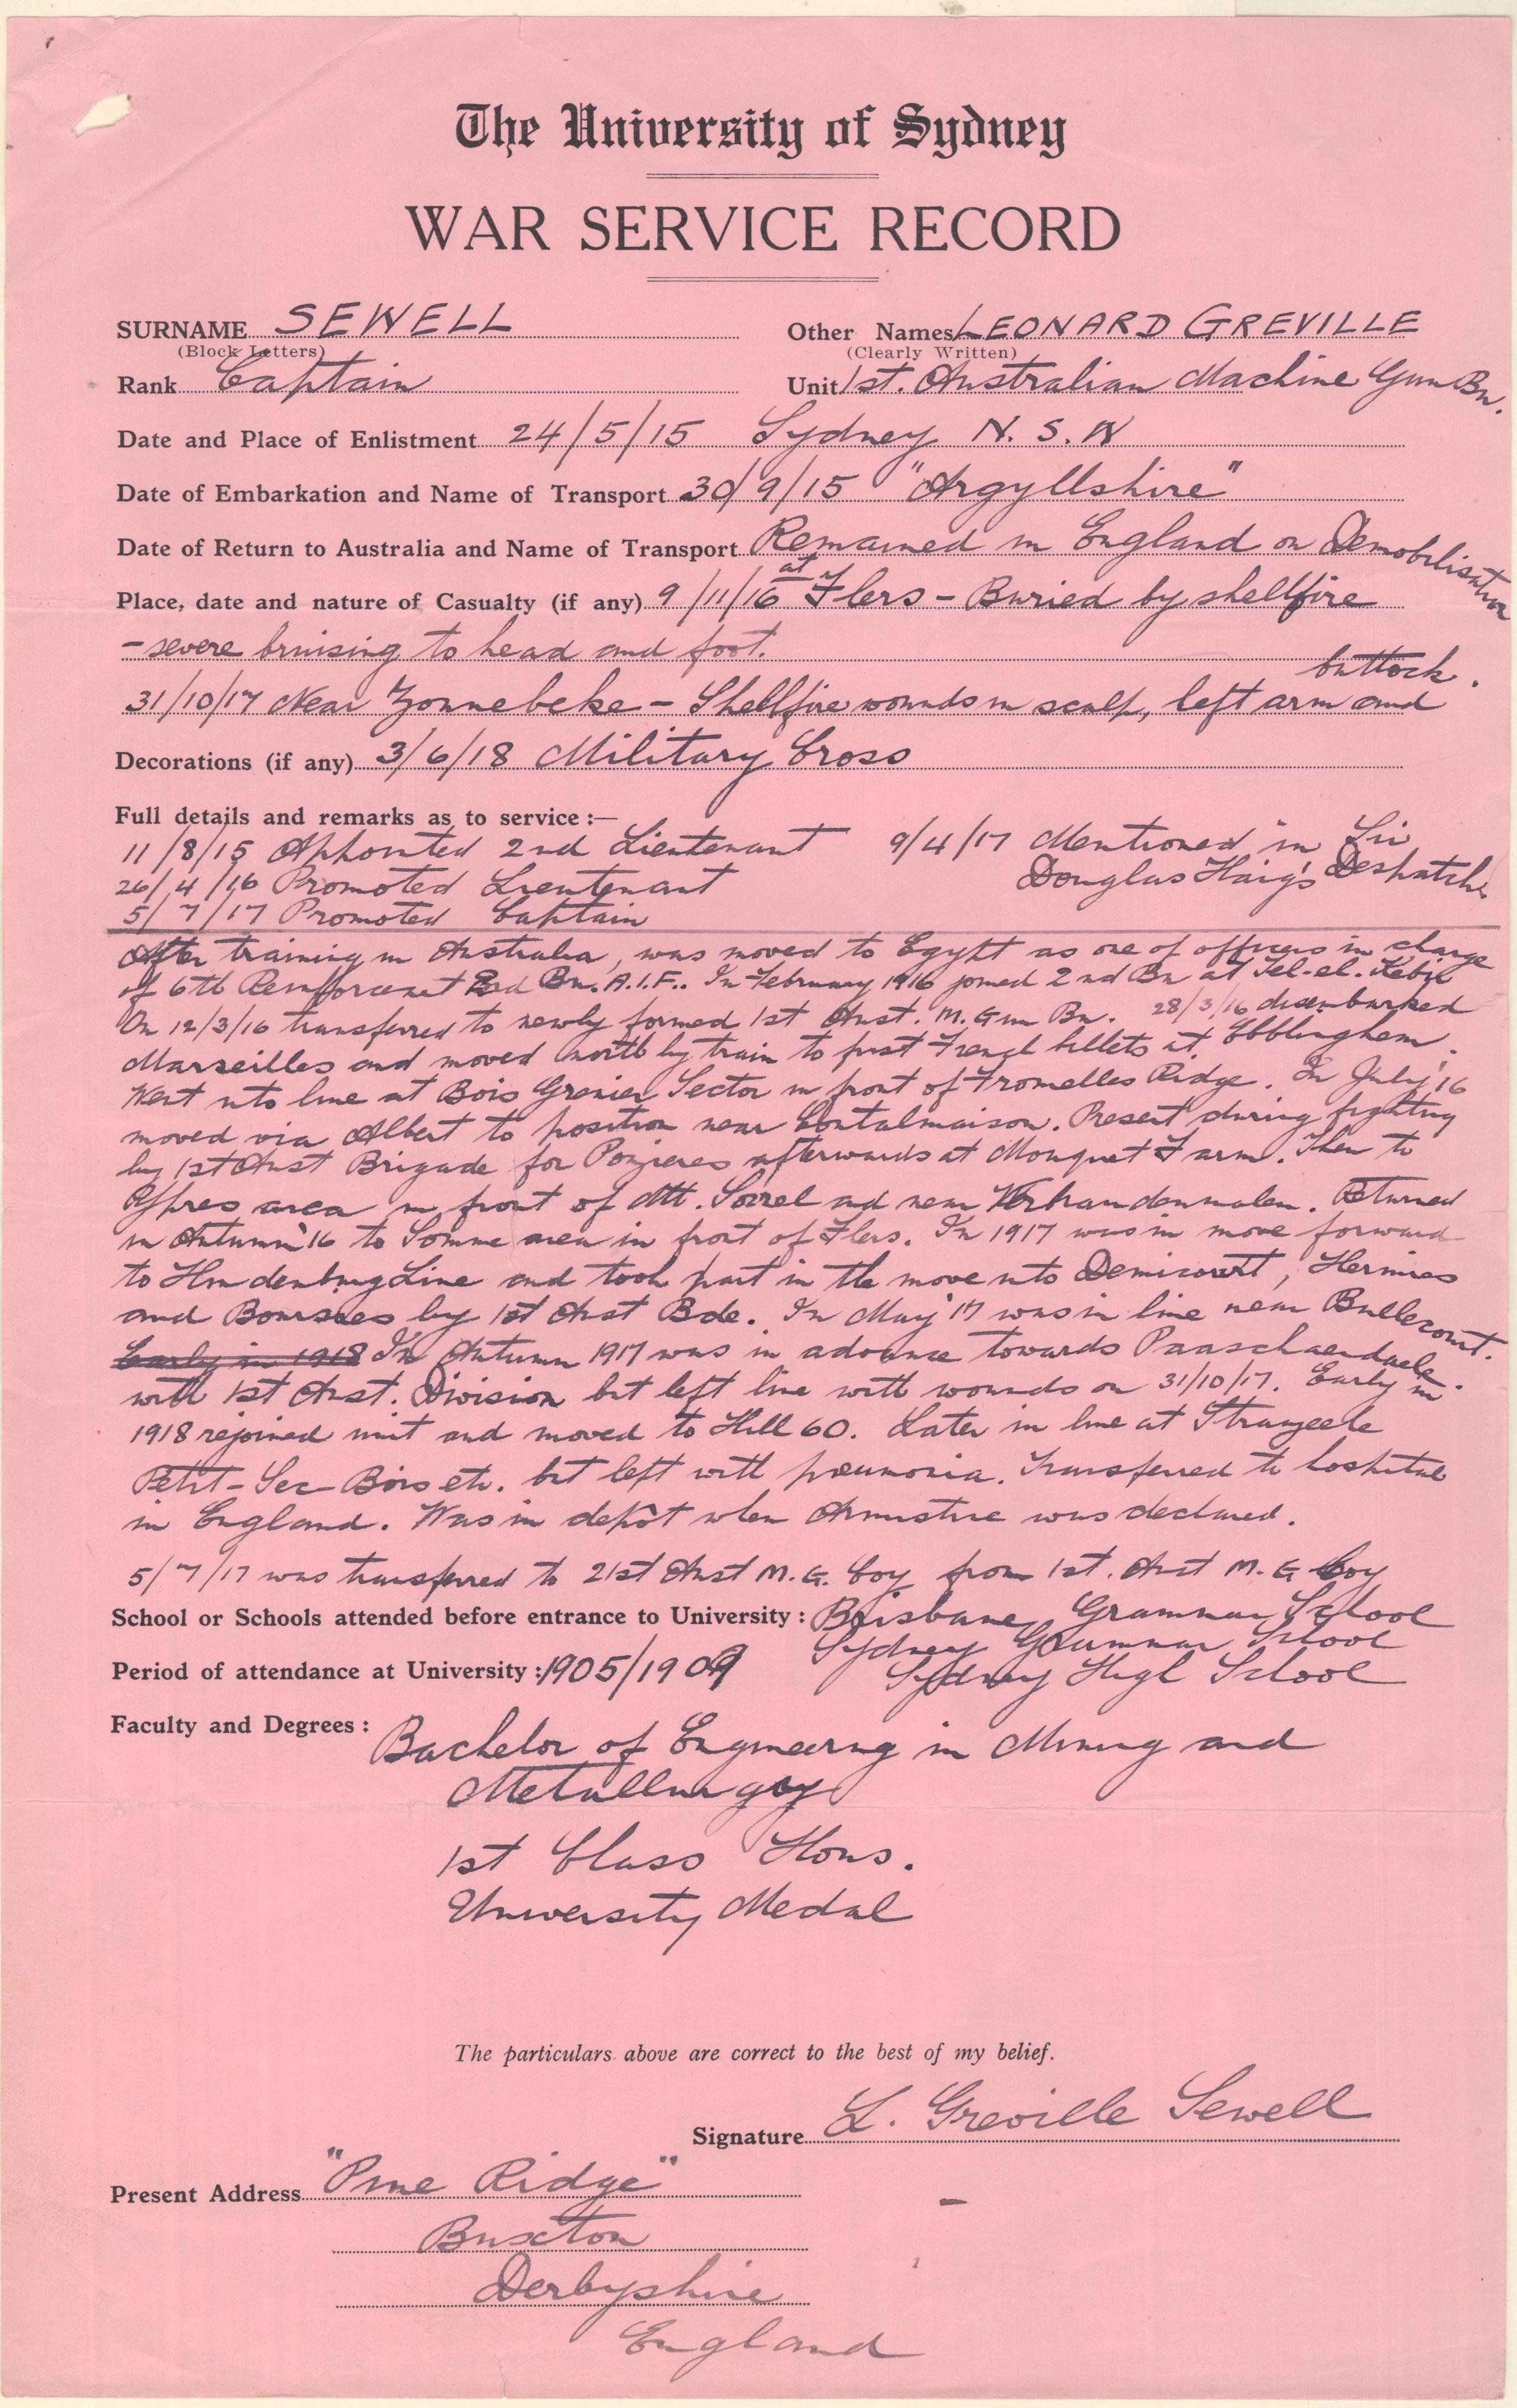 The University of Sydney
WAR SERVICE RECORD
SURNAME SEWELL Other Names LEONARD GREVILLE
(Block Letters) (Clearly Written)
Rank Captain Unit 1st. Australian Machine Gun Bn.
Date and Place of Enlistment 24/5/15 Sydney N. S. W
Date of Embarkation and Name of Transport 30/9/15 "Argyllshire"
Date of Return to Australia and Name of Transport Remained in England on Demobilisation
Place, date and nature of Casualty (if any) 9/11/16 at Flers - Buried by shellfire
- severe bruising to head and foot.
31/10/17 Near Zonnebeke - Shellfire wounds in scalp, left arm and buttock.
Decorations (if any) 3/6/18 Military Cross
Full details and remarks as to service :—
11/8/15 Appointed 2nd Lieutenant 9/4/17 Mentioned in Sir
26/4/16 Promoted Lieutenant Douglas Haig's Despatches
5/7/17 Promoted Captain
After training in Australia, was moved to Egypt as one of officers in charge
of 6th Reinforcement 2nd Bn. A.I.F.. In February 1916 joined 2nd Bn at Tel-el-Kebir
On 12/3/16 transferred to newly formed 1st Aust. M. Gun Bn. 28/3/16 disembarked
Marseilles and moved north by train to first French billets at Ebblinghem.
Went into line at Bois Grenier Sector in front of Fromelles Ridge. In July '16
moved via Albert to position near Contalmaison. Present during fighting
by 1st Aust Brigade for Pozieres afterwards at Mouquet Farm. Then to
Ypres area in front of Mt. Sorrel and near Verbrandenmolen. Returned
in Autumn '16 to Somme area in front of Flers. In 1917 was in move forward
to Hindenburg Line and took part in the move into Demicourt, Hermies
and Boursies by 1st Aust Bde. In May '17 was in line near Bullecourt.
Early in 1918 In Autumn 1917 was in advance towards Paaschaendaele.
with 1st Aust. Division but left line with wounds on 31/10/17. Early in
1918 rejoined unit and moved to Hill 60. Later in line at Strazeele
Petit-Sec-Bois etc. but left with pneumonia. Transferred to hospital
in England. Was in depôt when Armistice was declared.
5/7/17 was transferred to 21st Aust M. G. Coy from 1st. Aust M. G Coy
School or Schools attended before entrance to University : Brisbane Grammar School
Sydney Grammar School
Period of attendance at University : 1905/1909 Sydney High School
Faculty and Degrees : Bachelor of Engineering in Mining and
Metallurgy
1st Class Hons.
University Medal
The particulars above are correct to the best of my belief.
Signature L. Greville Sewell
Present Address "Pine Ridge"
Buxton
Derbyshire
England